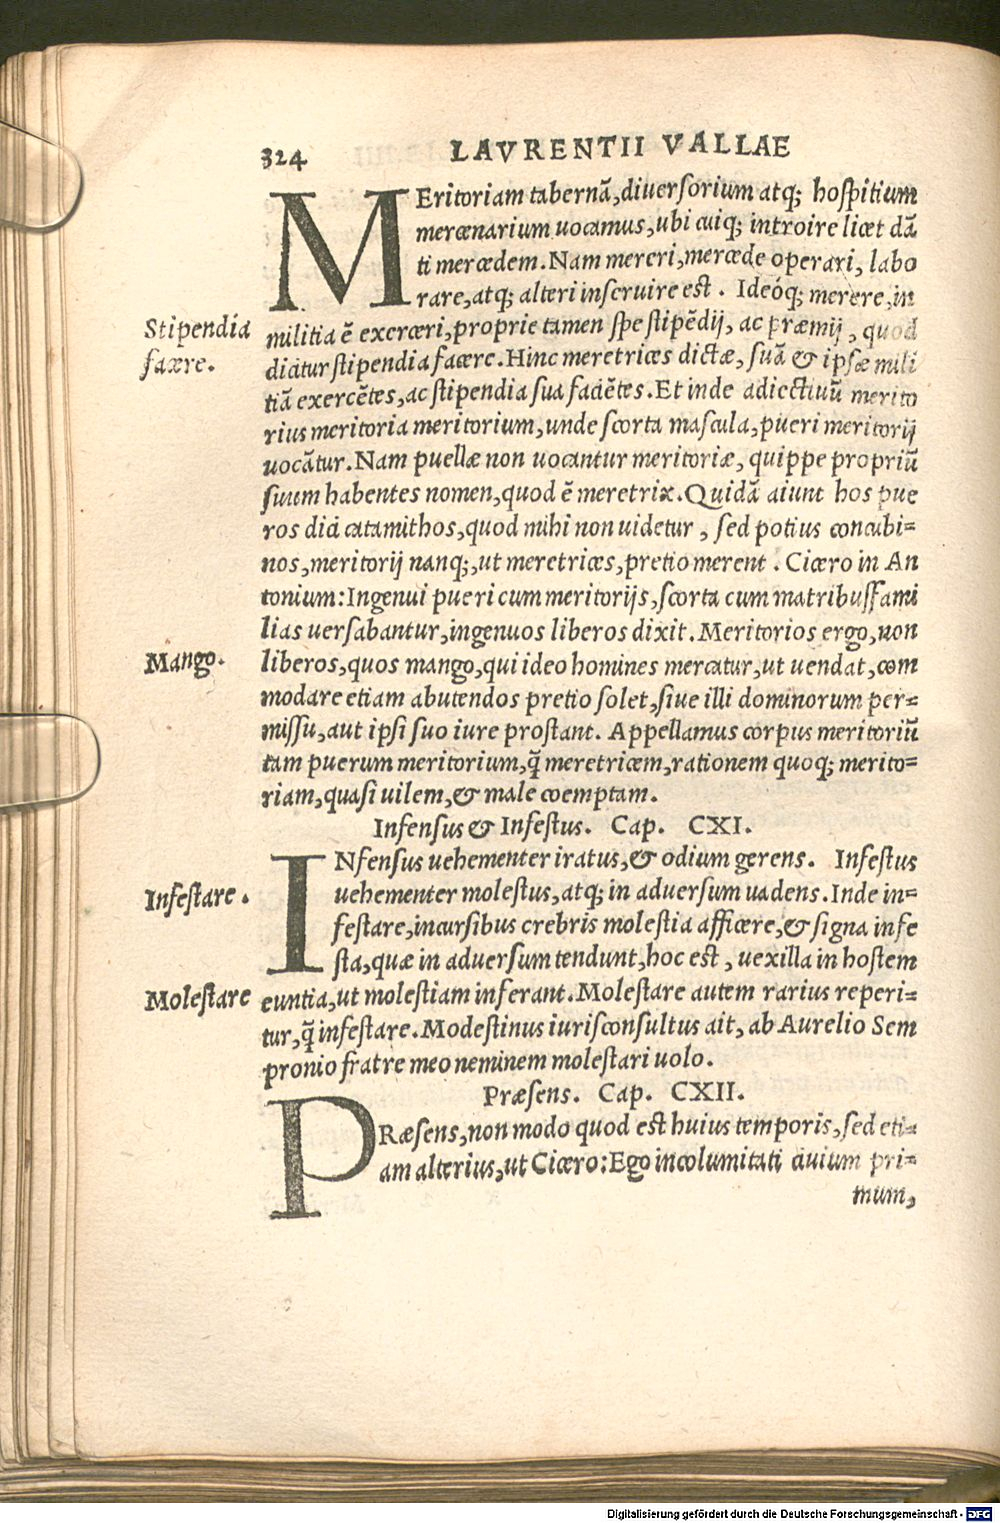 324 LAVRENTII VALLAE
MEritoriam tabernā, diversorium atq; hospitium
mercenarium uocamus, ubi cuiq; introire licet dā
ti mercedem. Nam mereri, mercede operari, labo
rare, atq; alteri inseruire est. Ideóq; merere, in
Stipendia
facere.
militia ē exerceri, proprie tamen spe stipēdij, ac præmij, quod
dicitur stipendia facere. Hinc meretrices dictæ, suā & ipsæ mili
tiā exercētes, ac stipendia sua faciētes. Et inde adiectiuū merito
rius meritoria meritorium, unde scorta mascula, pueri meritorij
uocātur. Nam puellæ non uocantur meritoriæ, quippe propriū
suum habentes nomen, quod ē meretrix. Quidā aiunt hos pue
ros dici catamithos, quod mihi non uidetur, sed potius concubi-
nos, meritorij nanq;, ut meretrices, pretio merent. Cicero in An
tonium: Ingenui pueri cum meritorijs, scorta cum matribusfami
lias uersabantur, ingenuos liberos dixit. Meritorios ergo, non
Mango.
liberos, quos mango, qui ideo homines mercatur, ut uendat, com
modare etiam abutendos pretio solet, siue illi dominorum per-
missu, aut ipsi suo iure prostant. Appellamus corpus meritoriū
tam puerum meritorium, q̄ meretricem, rationem quoq; merito-
riam, quasi uilem, & male coemptam.
Infensus & Infestus. Cap. CXI.
INfensus uehementer iratus, & odium gerens. Infestus
Infestare.
uehementer molestus, atq; in adversum uadens. Inde in-
festare, incursibus crebris molestia afficere, & signa infe
sta, quæ in adversum tendunt, hoc est, uexilla in hostem
Molestare
euntia, ut molestiam inferant. Molestare autem rarius reperi-
tur, q̄ infestare. Modestinus iurisconsultus ait, ab Aurelio Sem
pronio fratre meo neminem molestari uolo.
Præsens. Cap. CXII.
PRæsens, non modo quod est huius temporis, sed eti-
am alterius, ut Cicero: Ego incolumitati ciuium pri-
mum,
Digitalisierung gefördert durch die Deutsche Forschungsgemeinschaft - DFG